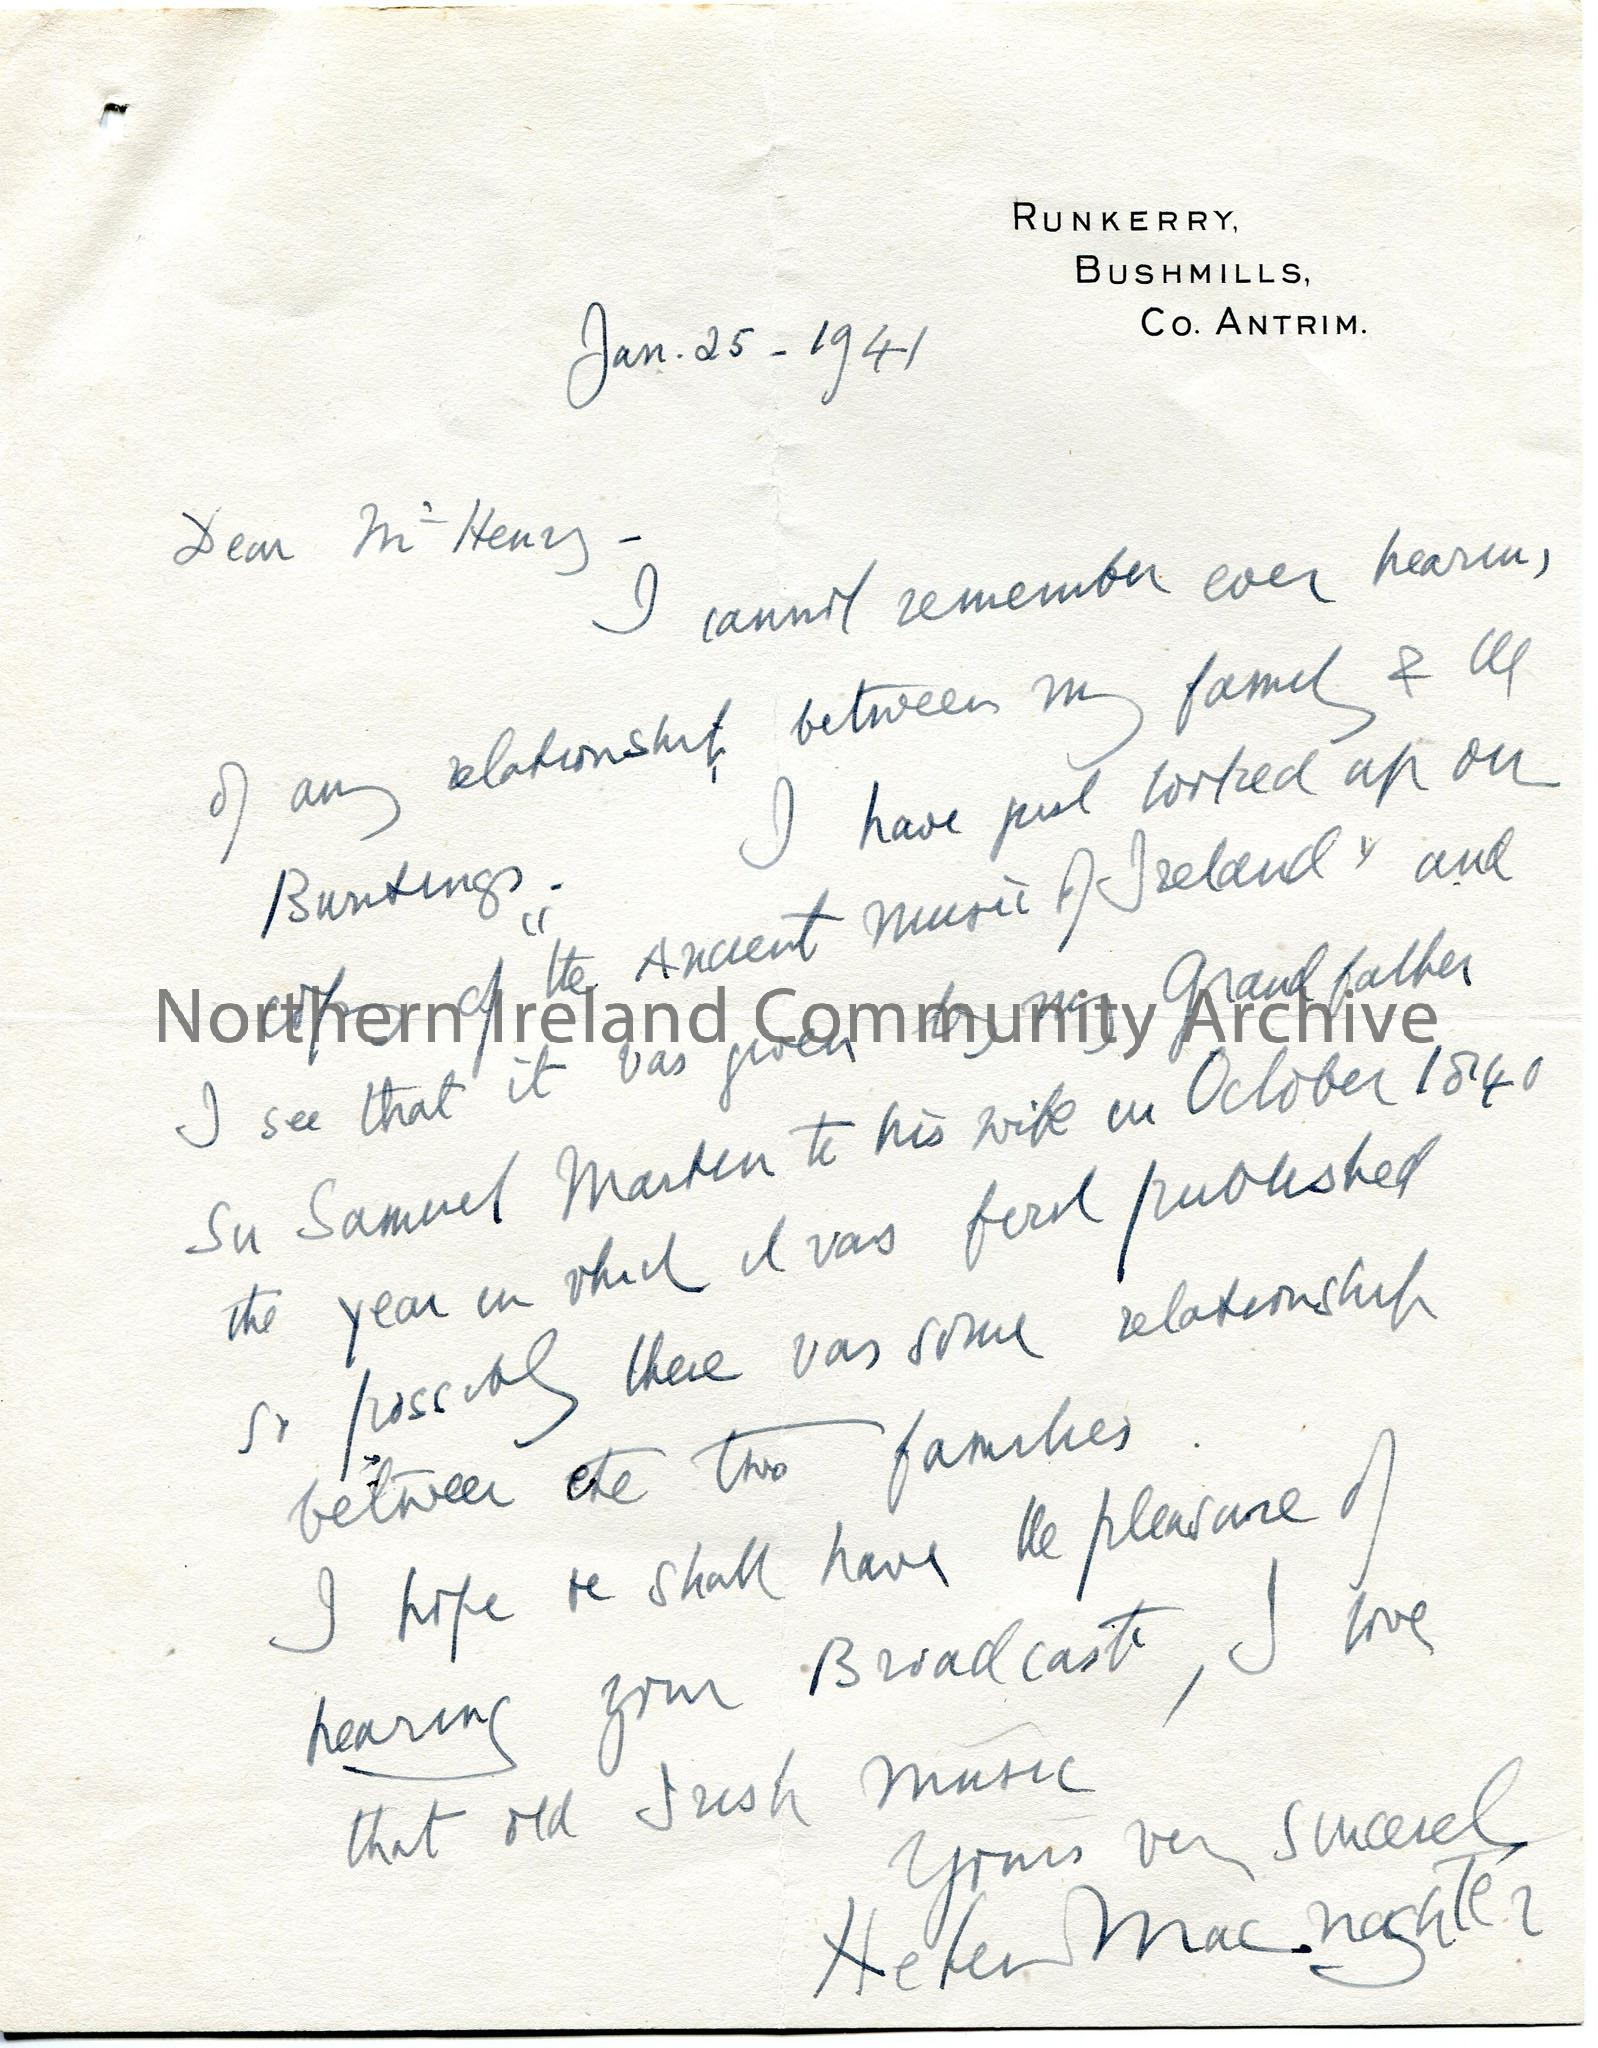 RUNKERRY,
BUSHMILLS,
CO. ANTRIM.
Jan. 25 - 1941
Dear Mc Henry -
I cannot remember ever hearing
of any relationship between my family & the
Buntings. I have just looked up our
copy of "the Ancient Music of Ireland" and
Northern Ireland Community Archive
I see that it was given by my Grandfather
Sir Samuel Martin to his wife in October 1840
the year in which it was first published
so possibly there was some relationship
between the two families.
I hope we shall have the pleasure of
hearing your Broadcast, I love
that old Irish music
Yours very sincerely
Helen Macnaghten